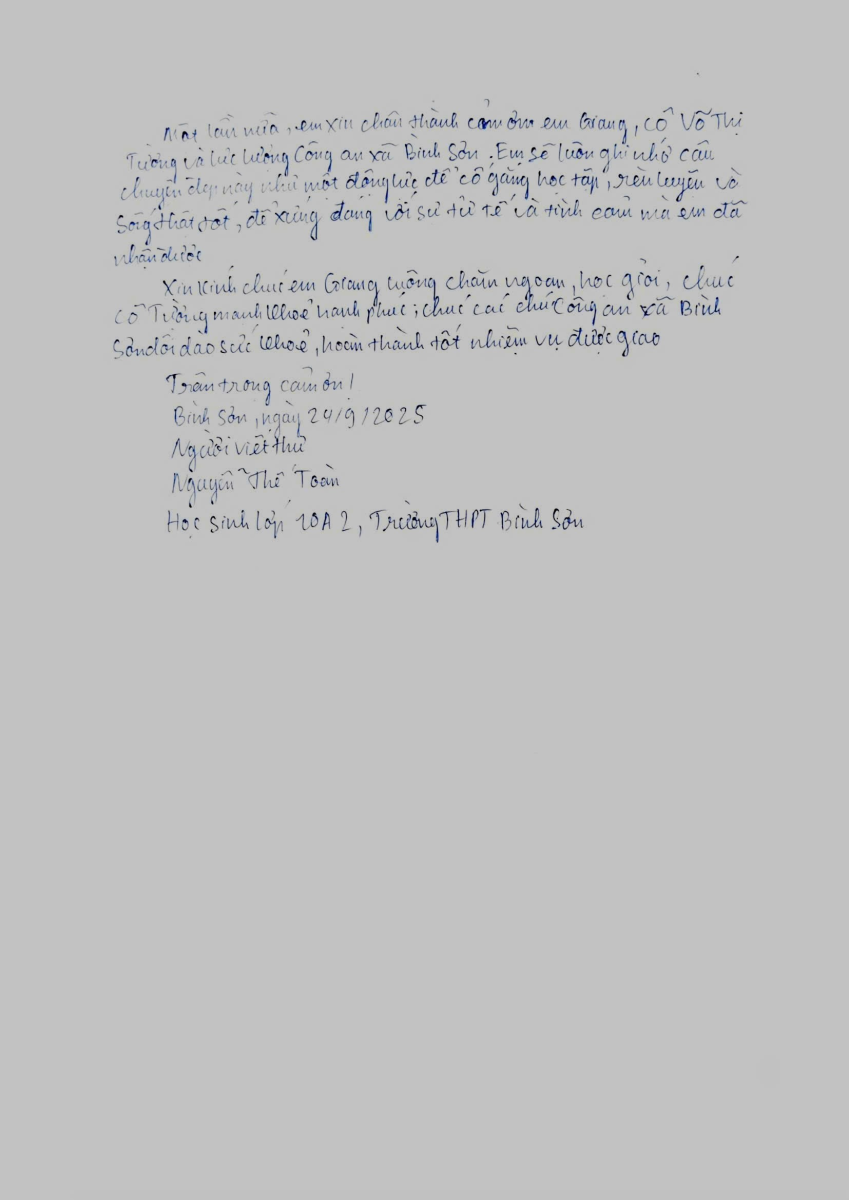 Một lần nữa, em xin chân thành cảm ơn em Giang, cô Võ Thị
Tường và lực lượng Công an xã Bình Sơn. Em sẽ luôn ghi nhớ câu
chuyện đẹp này như một động lực để cố gắng học tập, rèn luyện và
sống thật tốt, để xứng đáng với sự tử tế và tình cảm mà em đã
nhận được
Xin kính chúc em Giang luông chăm ngoan, học giỏi, chúc
cô Tường mạnh khoẻ hạnh phúc; chúc các chú Công an xã Bình
Sơn dồi dào sức khoẻ, hoàn thành tốt nhiệm vụ được giao
Trân trọng cảm ơn!
Bình Sơn, ngày 24/9/2025
Người viết thư
Nguyễn Thế Toàn
Học sinh lớp 10A2, Trường THPT Bình Sơn